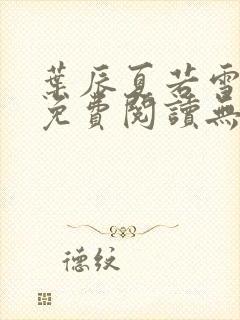 葉辰夏若雪
免費閱讀無
德紋